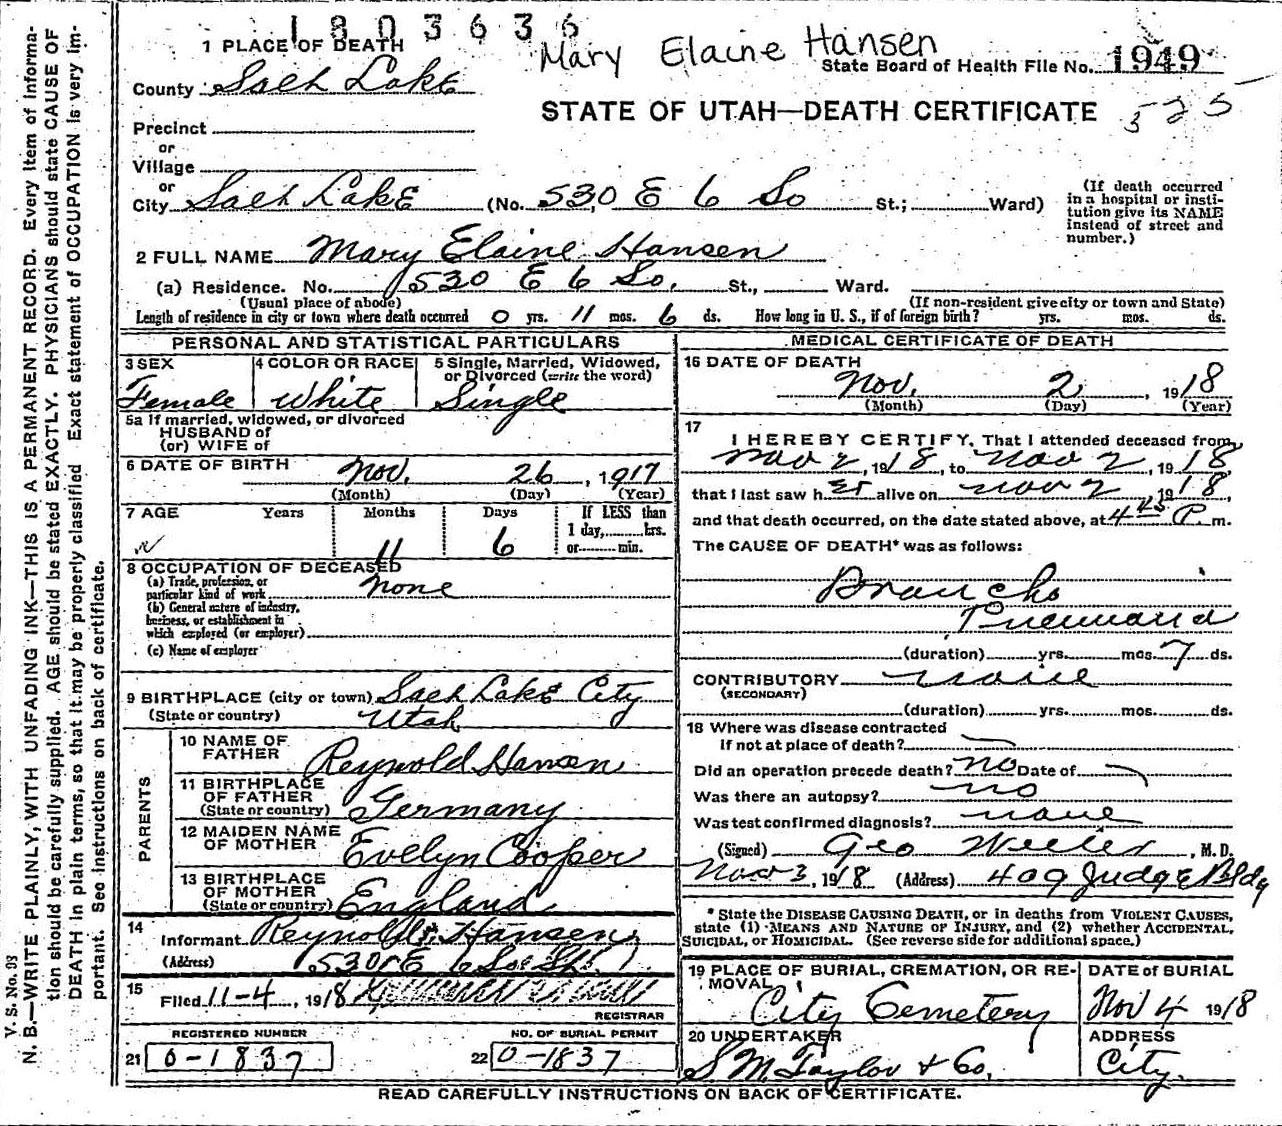 1803636
Mary Elaine Hansen
1 PLACE OF DEATH
State Board of Health File No. 1949
County Salt Lake
STATE OF UTAH—DEATH CERTIFICATE 525
Precinct
or
Village
or
City Salt Lake (No. 530 E 6 So St.; Ward)
(If death occurred in a hospital or insti-
tution give its NAME
instead of street and
number.)
2 FULL NAME Mary Elaine Hansen
(a) Residence. No. 530 E 6 So. St., Ward.
(Usual place of abode) (If non-resident give city or town and State)
Length of residence in city or town where death occurred 0 yrs. 11 mos. 6 ds. How long in U. S., if of foreign birth? yrs. mos. ds.
PERSONAL AND STATISTICAL PARTICULARS
3 SEX
Female
4 COLOR OR RACE
White
5 Single, Married, Widowed,
or Divorced (write the word)
Single
5a If married, widowed, or divorced
HUSBAND of
(or) WIFE of
6 DATE OF BIRTH Nov. 26, 1917
(Month) (Day) (Year)
7 AGE Years Months Days If LESS than
1 day, hrs.
or min.
11 6
8 OCCUPATION OF DECEASED
(a) Trade, profession, or
particular kind of work none
(b) General nature of industry,
business, or establishment in
which employed (or employer)
(c) Name of employer
9 BIRTHPLACE (city or town) Salt Lake City
(State or country) Utah
PARENTS
10 NAME OF
FATHER Reynold Hansen
11 BIRTHPLACE
OF FATHER
(State or country) Germany
12 MAIDEN NAME
OF MOTHER Evelyn Cooper
13 BIRTHPLACE
OF MOTHER
(State or country) England
14
Informant Reynold Hansen
(Address) 530 E 6 So St.
15
Filed 11-4, 1918
REGISTRAR
REGISTERED NUMBER NO. OF BURIAL PERMIT
21 0-1837 22 0-1837
MEDICAL CERTIFICATE OF DEATH
16 DATE OF DEATH
Nov. 2, 1918
(Month) (Day) (Year)
17
I HEREBY CERTIFY, That I attended deceased from
Nov 2, 1918, to Nov 2, 1918,
that I last saw her alive on Nov 2, 1918,
and that death occurred, on the date stated above, at 4 45 P. m.
The CAUSE OF DEATH* was as follows:
Broncho
Pneumonia
(duration) yrs. mos. 7 ds.
CONTRIBUTORY none
(SECONDARY)
(duration) yrs. mos. ds.
18 Where was disease contracted
If not at place of death?
Did an operation precede death? no Date of
Was there an autopsy? no
Was test confirmed diagnosis? none
(Signed) Geo , M. D.
Nov 3, 1918 (Address) 409 Judge Bldg
* State the DISEASE CAUSING DEATH, or in deaths from VIOLENT CAUSES,
state (1) MEANS AND NATURE OF INJURY, and (2) whether ACCIDENTAL,
SUICIDAL, or HOMICIDAL. (See reverse side for additional space.)
19 PLACE OF BURIAL, CREMATION, OR RE-
MOVAL
City Cemetery
DATE of BURIAL
Nov 4 1918
20 UNDERTAKER
S. M. Taylor + Co.
ADDRESS
City.
READ CAREFULLY INSTRUCTIONS ON BACK OF CERTIFICATE.
V. S. No. 93
N. B.—WRITE PLAINLY, WITH UNFADING INK—THIS IS A PERMANENT RECORD. Every item of informa-
tion should be carefully supplied. AGE should be stated EXACTLY. PHYSICIANS should state CAUSE OF
DEATH in plain terms, so that it may be properly classified Exact statement of OCCUPATION is very im-
portant. See instructions on back of certificate.